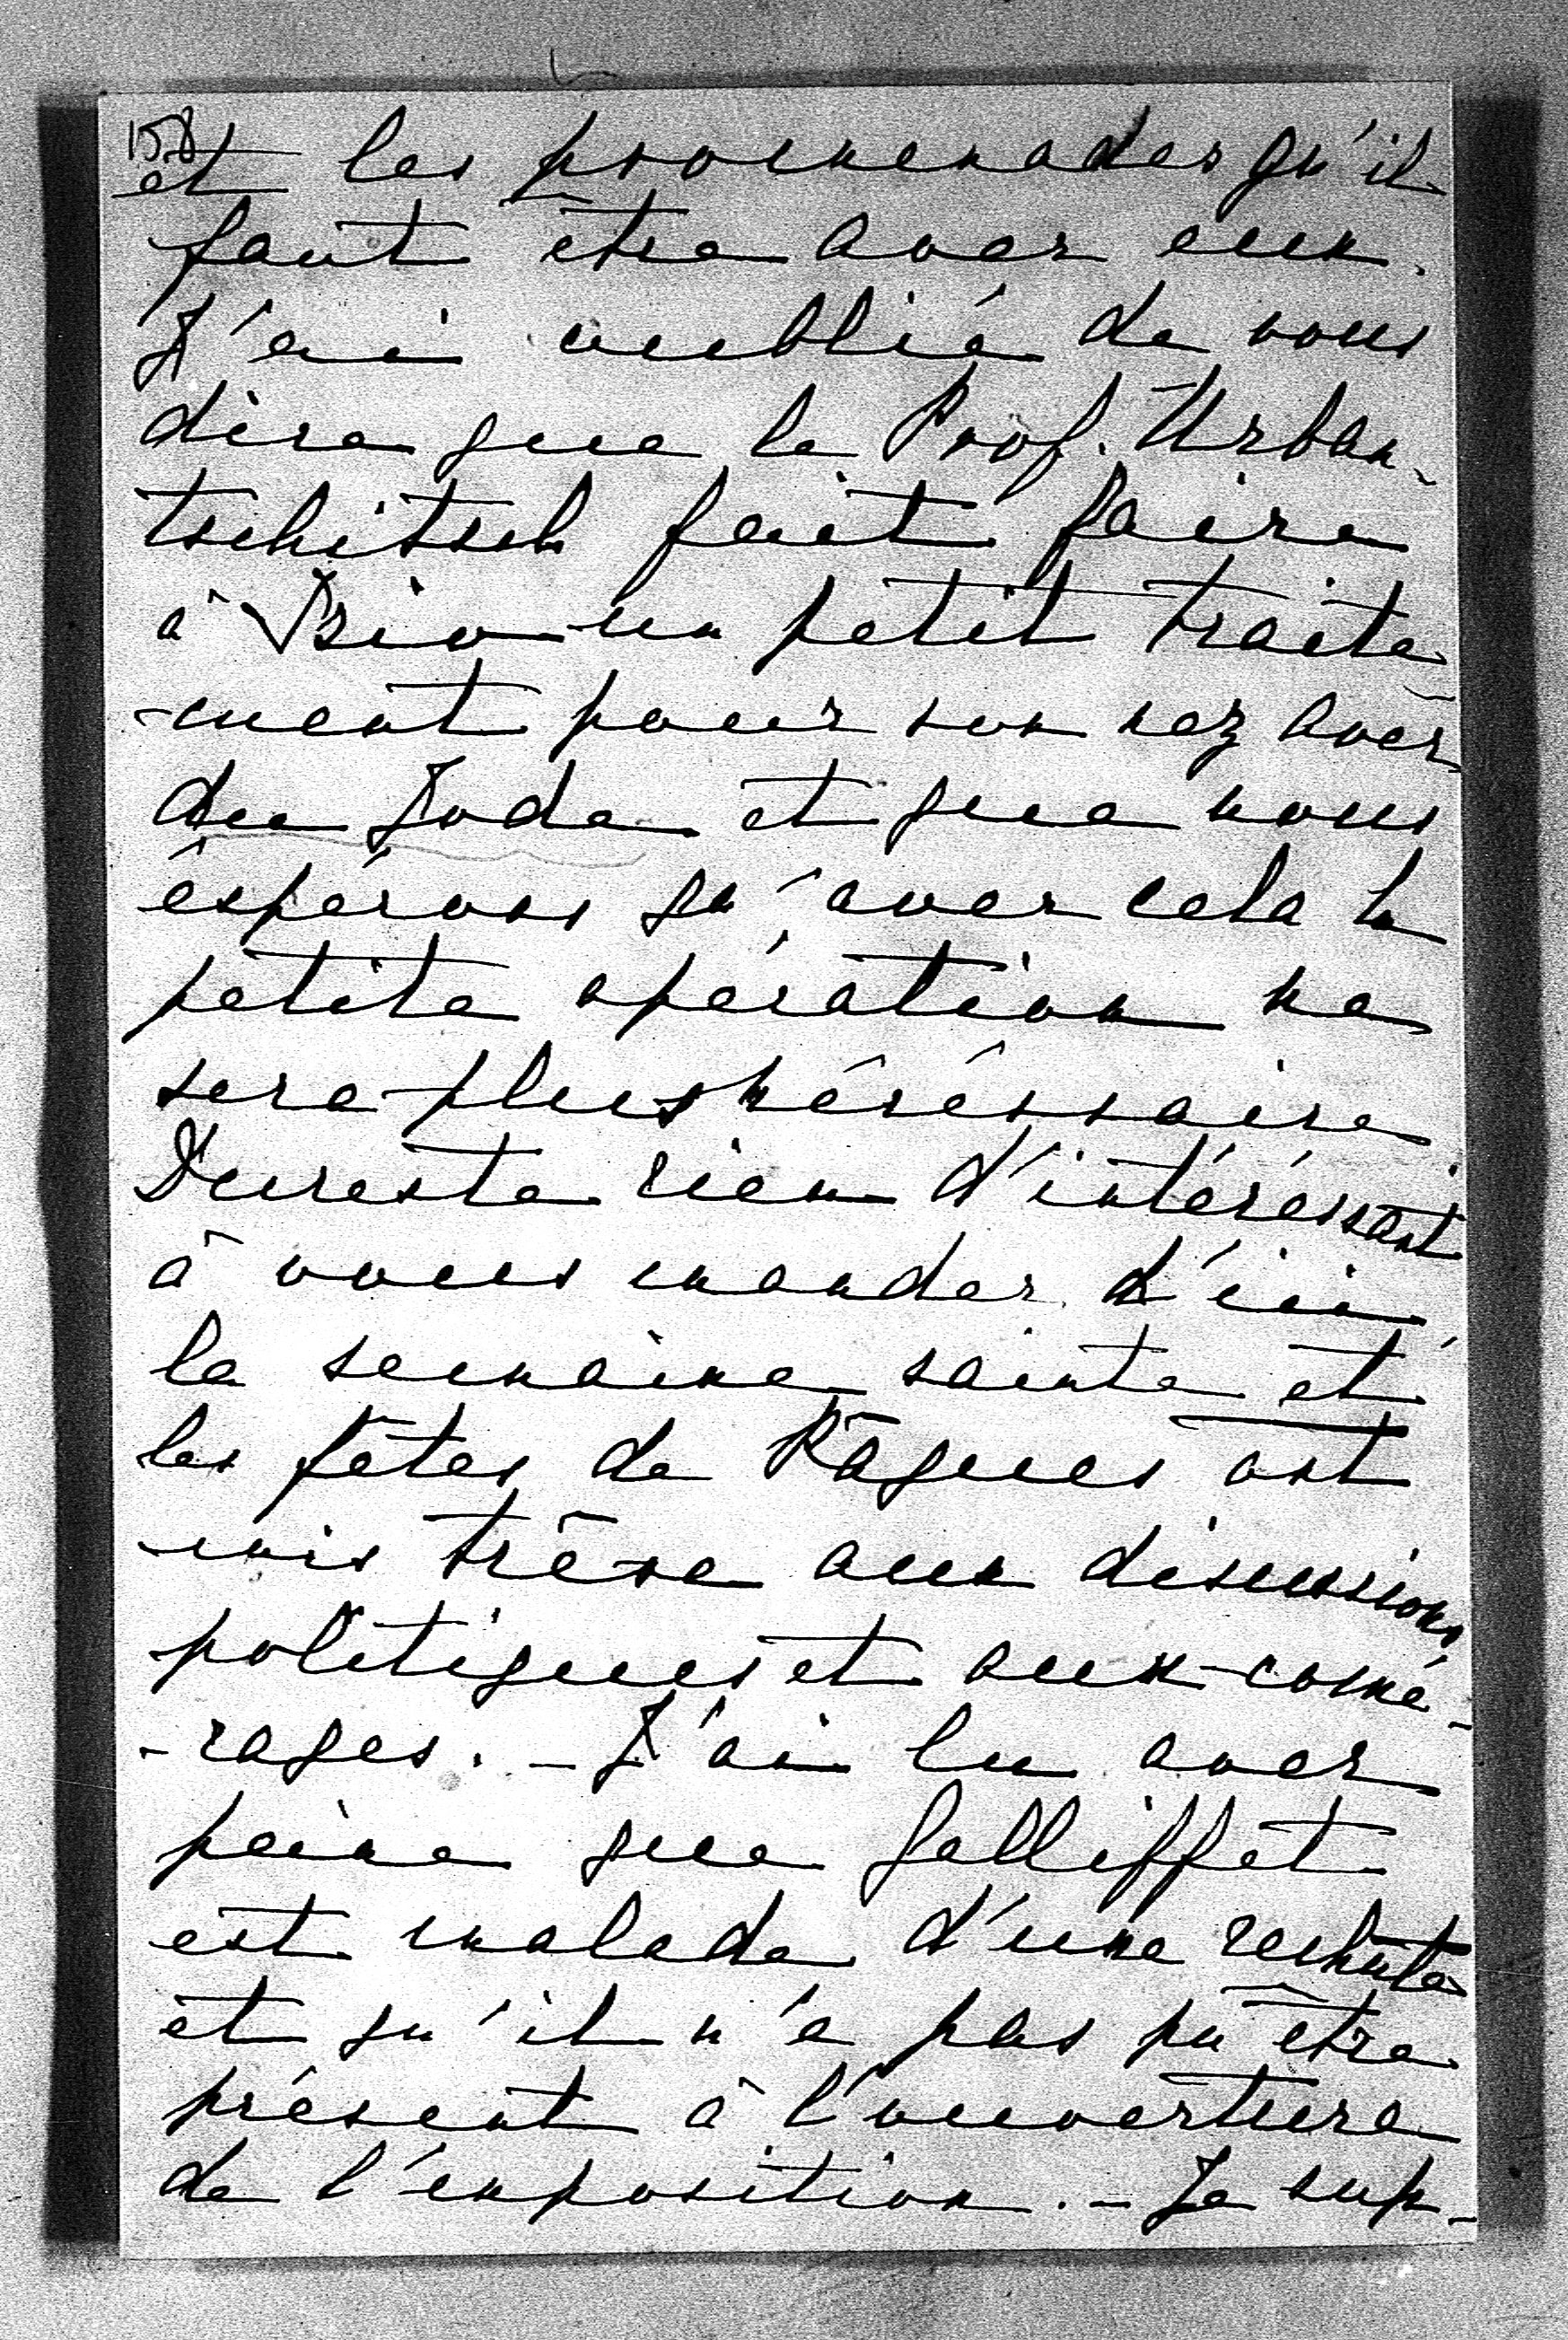 158
et les promenades qu'il
faut être avec eux.
J'ai oublié de vous
dire que le Prof. Urban-
tschitsch fait faire
à un petit traite
-ment pour son nez avec
du Jode et que nous
éspérons qu'avec cela la
petite opération ne
sera plus nécéssaire
Dureste rien d'intéréssant
à vous mander d'ici,
la semaine sainte et
les fêtes de Pâques ont
mis trêve aux discussions
politiques et aux comé-
-rages. - J'ai lu avec
peine que Galliffet
est malade d'une rechute
et qu'il n'a pas pu être
présent à l'ouverture
de l'exposition. - Je sup-